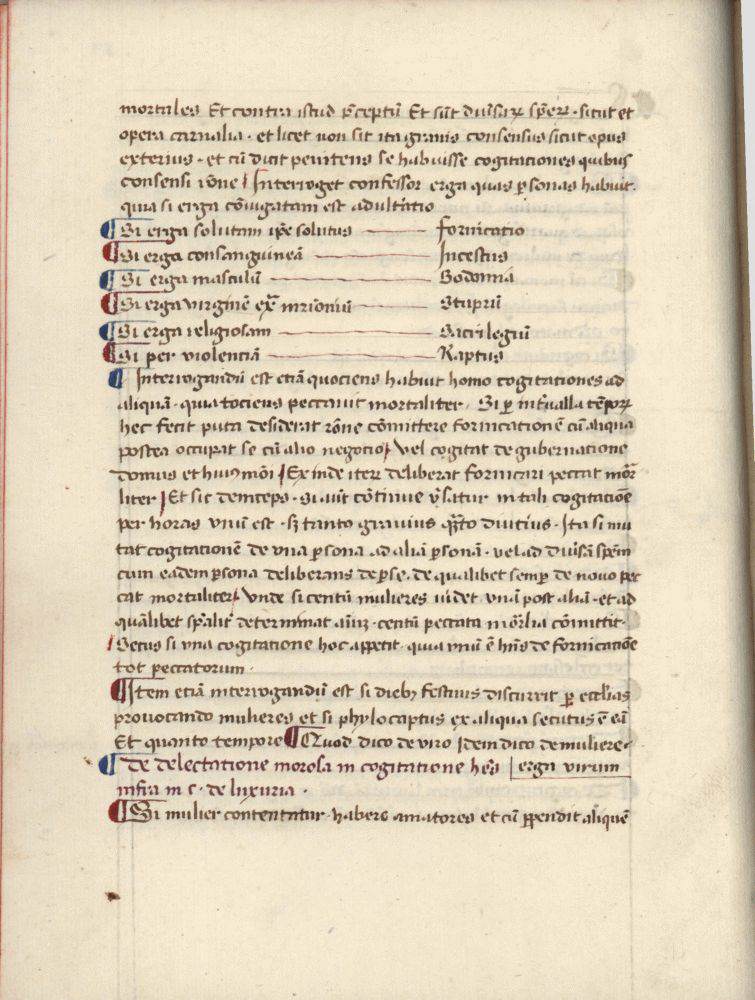 mortales Et contra istud p̄ceptū Et sūt diūsaꝝ spēꝝ · sicut et
opera carnalia · et licet non sit ita gravis consensus sicut opus
exterius · et cū dicit penitens se habuisse cogitationes quibus
consensi rōne / Interroget confessor erga quas ꝑsonas habuit ·
quia si erga cōiugatam est adultātio
¶ Si erga solutam ip̄e solutus —— Fornicatio
¶ Si erga consanguineā —— Incestus
¶ Si erga masculū —— Sodomia
¶ Si erga virginē ex̄ mr̄ioniū —— Stuprū
¶ Si erga religiosam —— Sacrilegiū
¶ Si per violenciā —— Raptus
¶ Interrogandū est etiā quociens habuit homo cogitationes ad
aliquā · quia tociens peccauit mortaliter · Si ꝑ int̄ualla tēpoꝝ
hec fecit puta desiderat rōne cōmittere fornicationē cū aliqua
postea occupat se cū alio negocio / vel cogitat de gubernatione
domus et huiꝰmōi / Ex inde iterū deliberat fornicari peccat mōr
liter / Et sic deinceps · Si aūt cōtinue v̄satur in tali cogitacōe
per horas vnū est · sꝫ tanto grauius quāto diutius · Ita si mu
tat cogitationē de vna ꝑsona ad aliā ꝑsonā · vel ad diūsā spēm
cum eadem ꝑsona deliberans de ꝑse · de qualibet semꝑ de novo pec
cat mortaliter / vnde si centū mulieres videt vnā post aliā · et ad
quālibet spāliť determinat · centū peccata mōrlia cōmittit ·
/ Secus si vna cogitatione hoc appetit · quia vnū ē hn̄s de fornicatiōe
tot peccatorum ·
¶ Item etiā interrogandū est si diebꝫ festiuis discurrit ꝑ ecclīas
prouocando mulieres et si phylocaptus ex aliqua secutus ē eā
Et quanto tempore ¶ Quod dico de viro Idem dico de muliere ·
¶ De delectatione morosa in cogitatione hēs | erga virum
infra in c · de luxuria ·
¶ Si mulier contentatur habere amatores et cū ꝑpendit aliquē